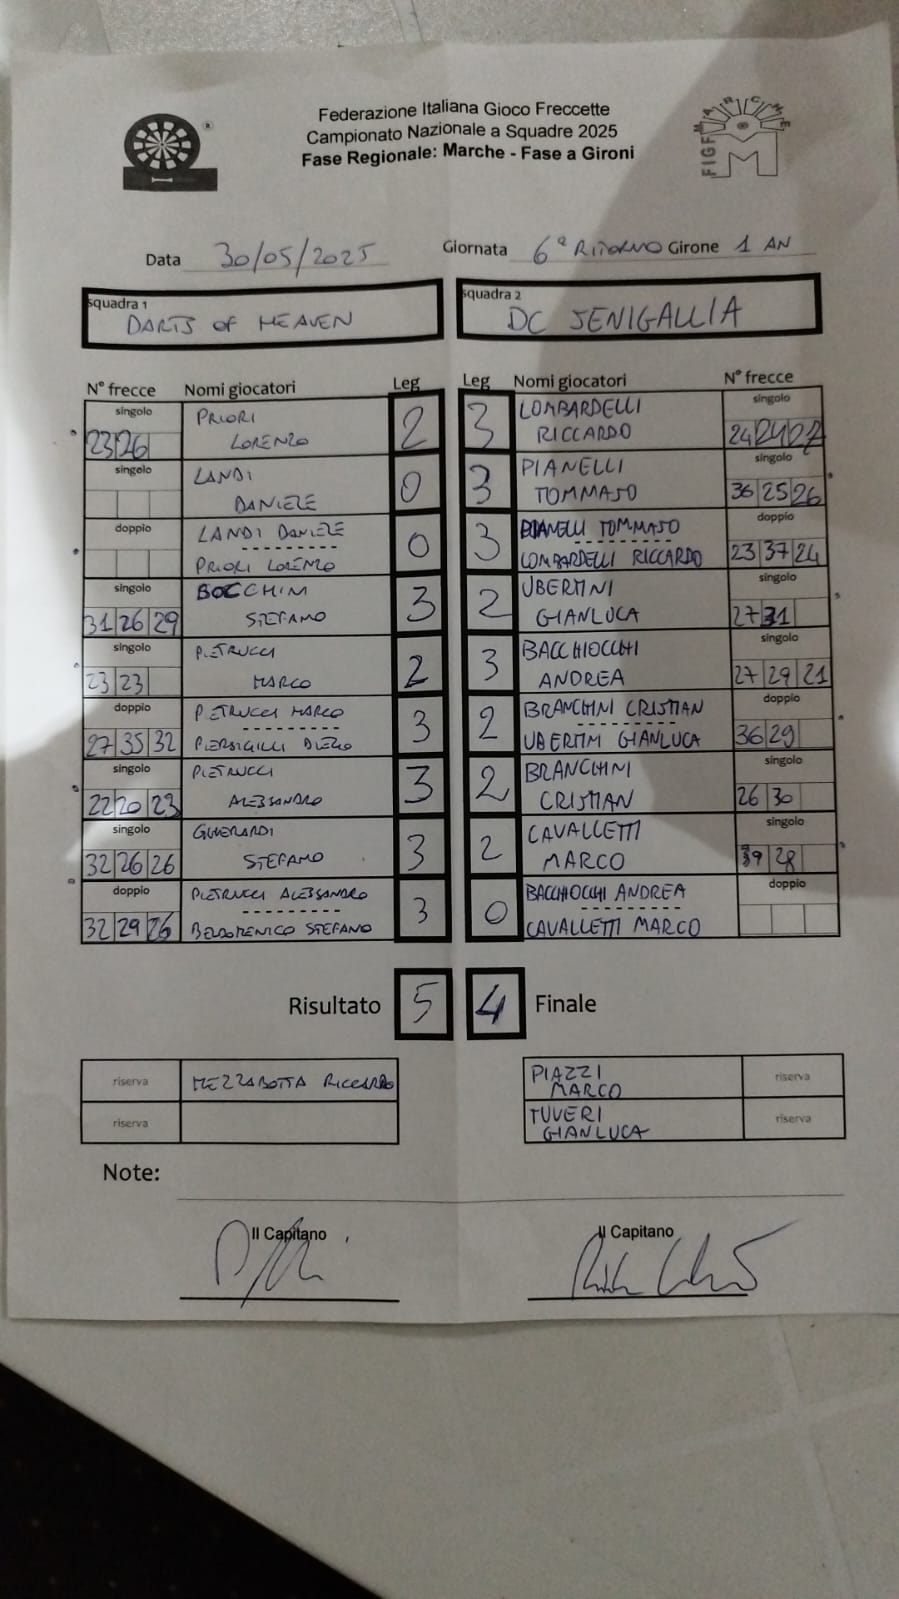 Federazione Italiana Gioco Freccette
Campionato Nazionale a Squadre 2025
Fase Regionale: Marche - Fase a Gironi
®
MARCHE
FIGF
M
Data 30/05/2025
Giornata 6ª RITORNO Girone 1 AN
squadra 1
DARTS OF HEAVEN
squadra 2
DC SENIGALLIA
N° frecce Nomi giocatori Leg Leg Nomi giocatori N° frecce
singolo PRIORI LOMBARDELLI singolo
23 26 LORENZO 2 3 RICCARDO 24 24 27
singolo LANDI PIANELLI singolo
DANIELE 0 3 TOMMASO 36 25 26
doppio LANDI DANIELE PIANELLI TOMMASO doppio
PRIORI LORENZO 0 3 LOMBARDELLI RICCARDO 23 37 24
singolo BOCCHINI UBERTINI singolo
31 26 29 STEFANO 3 2 GIANLUCA 27 31
singolo PIETRUCCI BACCHIOCCHI singolo
23 23 MARCO 2 3 ANDREA 27 29 21
doppio PIETRUCCI MARCO BRANCHINI CRISTIAN doppio
27 35 32 PIERSIGILLI DIEGO 3 2 UBERTINI GIANLUCA 36 29
singolo PIETRUCCI BRANCHINI singolo
22 20 23 ALESSANDRO 3 2 CRISTIAN 26 30
singolo GUERARDI CAVALLETTI singolo
32 26 26 STEFANO 3 2 MARCO 39 28
doppio PIETRUCCI ALESSANDRO BACCHIOCCHI ANDREA doppio
32 29 26 BELDOMENICO STEFANO 3 0 CAVALLETTI MARCO
Risultato 5 4 Finale
riserva MEZZABOTTA RICCARDO
riserva
PIAZZI
MARCO riserva
TUVERI
GIANLUCA riserva
Note:
Il Capitano
Il Capitano